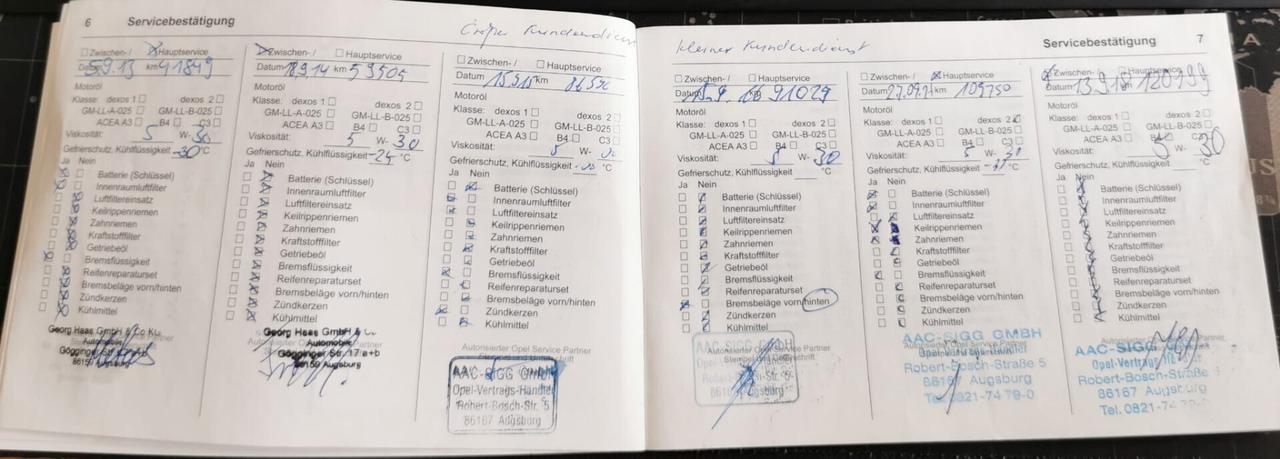 6 Servicebestätigung
Großer Kundendienst
☐ Zwischen-/ ☒ Hauptservice
Datum 5.9.13 km 41849
Motoröl
Klasse: dexos 1 ☐ dexos 2 ☐
GM-LL-A-025 ☐ GM-LL-B-025 ☐
ACEA A3 ☐ B4 ☐ C3 ☐
Viskosität: 5 W- 30
Gefrierschutz, Kühlflüssigkeit -30 °C
Ja Nein
Batterie (Schlüssel)
Innenraumluftfilter
Luftfiltereinsatz
Keilrippenriemen
Zahnriemen
Kraftstofffilter
Getriebeöl
Bremsflüssigkeit
Reifenreparaturset
Bremsbeläge vorn/hinten
Zündkerzen
Kühlmittel
Georg Haas GmbH & Co KG
Automobile
Gögginger Str. 17 a+b
86159 Augsburg
☒ Zwischen-/ ☐ Hauptservice
Datum 18.9.14 km 53505
Motoröl
Klasse: dexos 1 ☐ dexos 2 ☐
GM-LL-A-025 ☐ GM-LL-B-025 ☐
ACEA A3 ☐ B4 ☐ C3 ☐
Viskosität: 5 W- 30
Gefrierschutz, Kühlflüssigkeit -24 °C
Ja Nein
Batterie (Schlüssel)
Innenraumluftfilter
Luftfiltereinsatz
Keilrippenriemen
Zahnriemen
Kraftstofffilter
Getriebeöl
Bremsflüssigkeit
Reifenreparaturset
Bremsbeläge vorn/hinten
Zündkerzen
Kühlmittel
Autorisierter Opel Service Partner
Georg Haas GmbH &
Automobile
Gögginger Str. 17 a+b
86159 Augsburg
☐ Zwischen-/ ☐ Hauptservice
Datum km
Motoröl
Klasse: dexos 1 ☐ dexos 2 ☐
GM-LL-A-025 ☐ GM-LL-B-025 ☐
ACEA A3 ☐ B4 ☐ C3 ☐
Viskosität: 5 W-
Gefrierschutz, Kühlflüssigkeit °C
Ja Nein
Batterie (Schlüssel)
Innenraumluftfilter
Luftfiltereinsatz
Keilrippenriemen
Zahnriemen
Kraftstofffilter
Getriebeöl
Bremsflüssigkeit
Reifenreparaturset
Bremsbeläge vorn/hinten
Zündkerzen
Kühlmittel
Autorisierter Opel Service Partner
AAC-SIGG GMBH
Opel-Vertrags-Händler
Robert-Bosch-Str. 5
86167 Augsburg
kleiner Kundendienst
Servicebestätigung 7
☐ Zwischen-/ ☐ Hauptservice
Datum 91029
Motoröl
Klasse: dexos 1 ☐ dexos 2 ☐
GM-LL-A-025 ☐ GM-LL-B-025 ☐
ACEA A3 ☐ B4 ☐ C3 ☐
Viskosität: 5 W- 30
Gefrierschutz, Kühlflüssigkeit °C
Ja Nein
Batterie (Schlüssel)
Innenraumluftfilter
Luftfiltereinsatz
Keilrippenriemen
Zahnriemen
Kraftstofffilter
Getriebeöl
Bremsflüssigkeit
Reifenreparaturset
Bremsbeläge vorn/hinten
Zündkerzen
Kühlmittel
Autorisierter Opel Service Partner
AAC-SIGG GMBH
☐ Zwischen-/ ☒ Hauptservice
Datum km 109750
Motoröl
Klasse: dexos 1 ☐ dexos 2 ☒
GM-LL-A-025 ☐ GM-LL-B-025 ☐
ACEA A3 ☐ B4 ☐ C3 ☐
Viskosität: 5 W- 30
Gefrierschutz, Kühlflüssigkeit °C
Ja Nein
Batterie (Schlüssel)
Innenraumluftfilter
Luftfiltereinsatz
Keilrippenriemen
Zahnriemen
Kraftstofffilter
Getriebeöl
Bremsflüssigkeit
Reifenreparaturset
Bremsbeläge vorn/hinten
Zündkerzen
Kühlmittel
AAC-SIGG GMBH
Opel-Vertrags-Händler
Robert-Bosch-Straße 5
86167 Augsburg
Tel. 0821-74 79-0
☒ Zwischen-/ ☐ Hauptservice
Datum 13.9.18 120999
Motoröl
Klasse: dexos 1 ☐ dexos 2 ☐
GM-LL-A-025 ☐ GM-LL-B-025 ☐
ACEA A3 ☐ B4 ☐ C3 ☐
Viskosität: 5 W- 30
Gefrierschutz, Kühlflüssigkeit °C
Ja Nein
Batterie (Schlüssel)
Innenraumluftfilter
Luftfiltereinsatz
Keilrippenriemen
Zahnriemen
Kraftstofffilter
Getriebeöl
Bremsflüssigkeit
Reifenreparaturset
Bremsbeläge vorn/hinten
Zündkerzen
Kühlmittel
AAC-SIGG GMBH
Opel-Vertrags-Händler
Robert-Bosch-Straße
86167 Augsburg
Tel. 0821-74 79-0